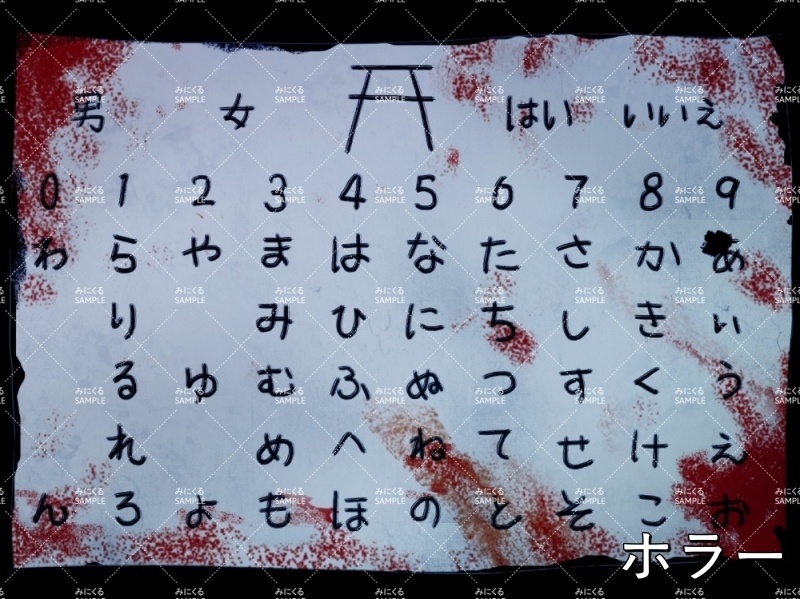 男 女 はい いいえ
0 1 2 3 4 5 6 7 8 9
わ ら や ま は な た さ か あ
り み ひ に ち し き い
る ゆ む ふ ぬ つ す く う
れ め へ ね て せ け え
ん ろ よ も ほ の と そ こ お
ホラー
みにくる
SAMPLE